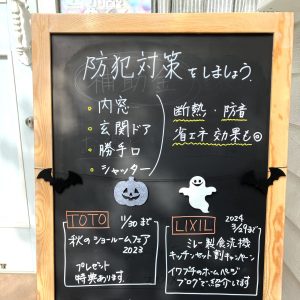 防犯対策をしましょう。
・内窓
・玄関ドア
・勝手口
・シャッター
断熱・防音
省エネ効果も◎
TOTO 11/30まで
秋のショールームフェア
2023
プレゼント
特典あります。
LIXIL 2024 3/29まで
ミレー製食洗機
キッチンセット割キャンペーン
イワブチのホームページ
ブログでご紹介しています